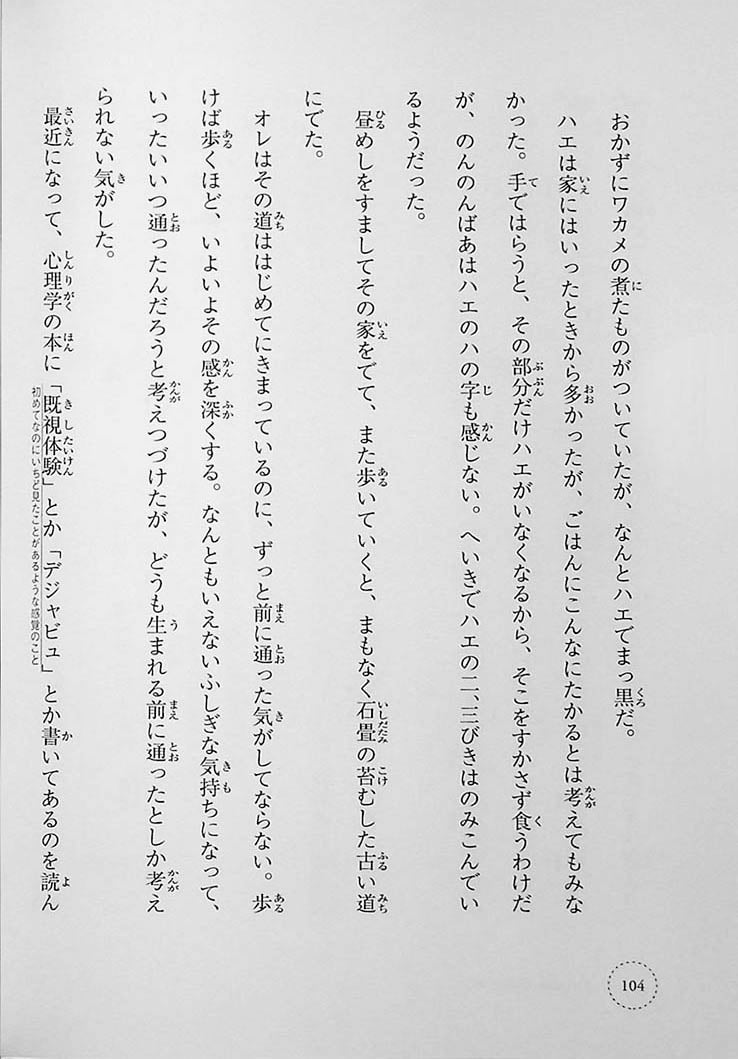 おかずにワカメの煮たものがついていたが、なんとハエでまっ黒だ。
ハエは家にはいったときから多かったが、ごはんにこんなにたかるとは考えてもみな
かった。手ではらうと、その部分だけハエがいなくなるから、そこをすかさず食うわけだ
が、のんのんばあはハエのハの字も感じない。へいきでハエの二、三びきはのみこんでい
るようだった。
昼めしをすましてその家をでて、また歩いていくと、まもなく石畳の苔むした古い道
にでた。
オレはその道ははじめてにきまっているのに、ずっと前に通った気がしてならない。歩
けば歩くほど、いよいよその感を深くする。なんともいえないふしぎな気持ちになって、
いったいいつ通ったんだろうと考えつづけたが、どうも生まれる前に通ったとしか考え
られない気がした。
最近になって、心理学の本に「既視体験」とか「デジャビュ」とか書いてあるのを読ん
初めてなのにいちど見たことがあるような感覚のこと
104